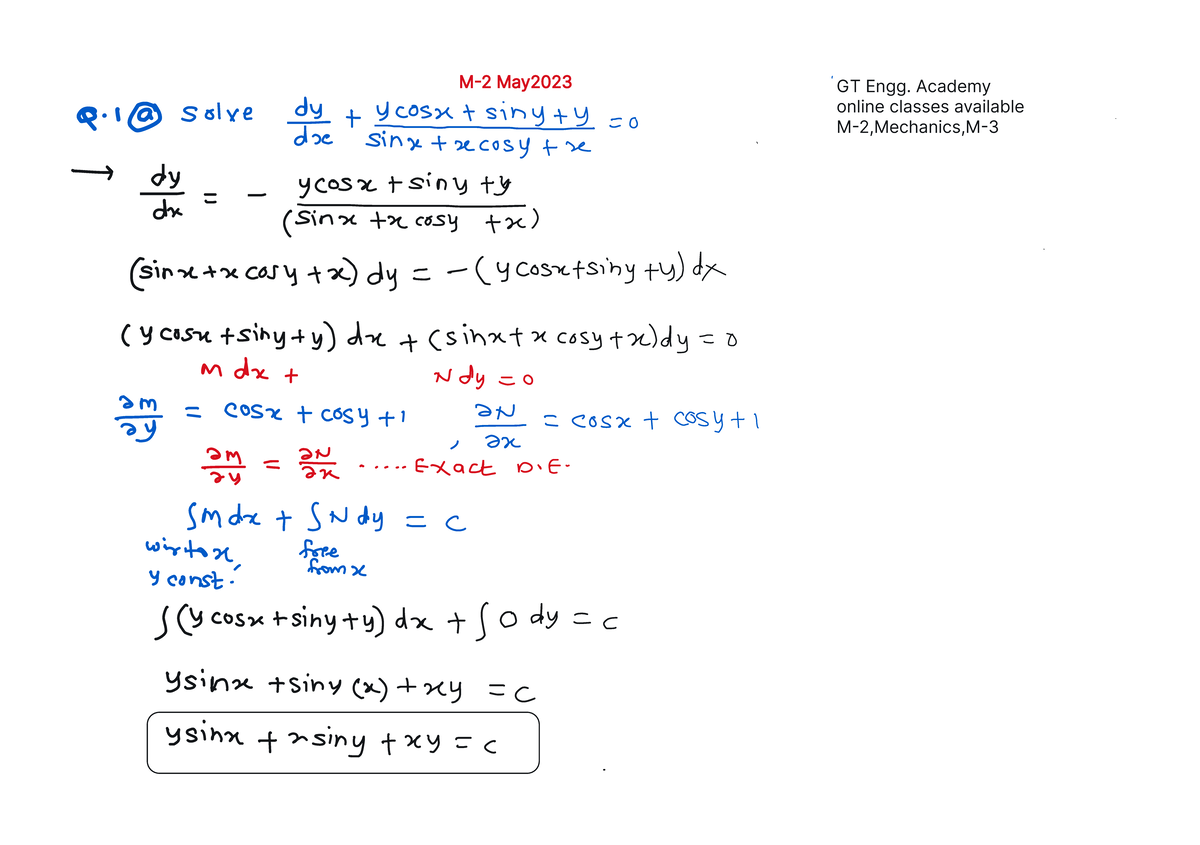 M-2 May2023
GT Engg. Academy
online classes available
M-2,Mechanics,M-3
Q.1 (a) Solve dy/dx + (y cosx + siny + y)/(sinx + x cosy + x) = 0
→ dy/dx = - (y cosx + siny + y)/(sinx + x cosy + x)
(sinx + x cosy + x) dy = - (y cosx + siny + y) dx
(y cosx + siny + y) dx + (sinx + x cosy + x) dy = 0
M dx + N dy = 0
∂M/∂y = cosx + cosy + 1 , ∂N/∂x = cosx + cosy + 1
∂M/∂y = ∂N/∂x ..... Exact D.E.
∫M dx + ∫N dy = c
w.r.to x, free
y const. from x
∫(y cosx + siny + y) dx + ∫0 dy = c
y sinx + siny (x) + xy = c
y sinx + x siny + xy = c